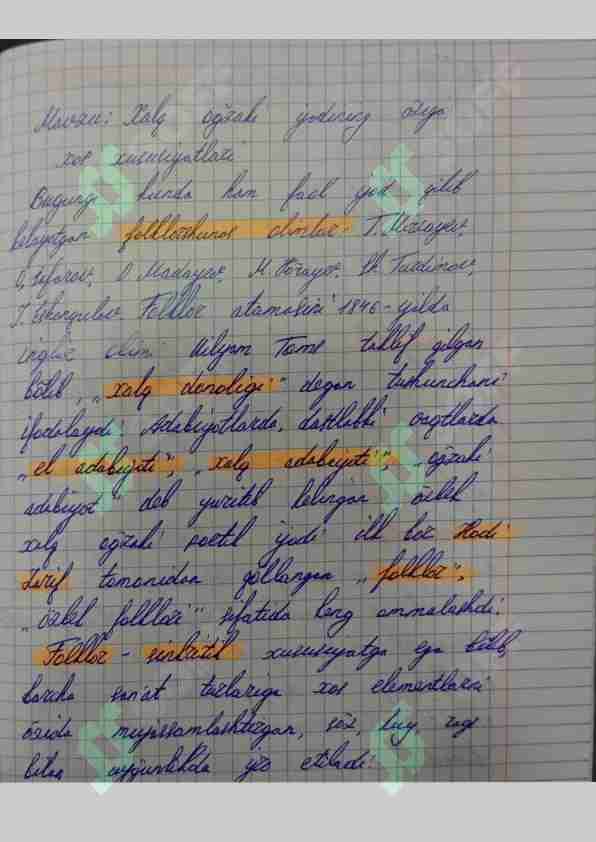 Mavzu: Xalq og'zaki ijodining o'ziga
xos xususiyatlari
Bugungi kunda ham faol ijod qilib
kelayotgan folklorshunos olimlar: T. Mirzayev,
O. Safarov, O. Madayev, M. Jo'rayev, Sh. Turdimov,
J. Eshonqulov. Folklor atamasini 1846-yilda
ingliz olimi Uilyam Toms taklif qilgan
bo'lib, „xalq donoligi" degan tushunchani
ifodalaydi. Adabiyotlarda, dastlabki vaqtlarda
„el adabiyoti", „xalq adabiyoti", „og'zaki
adabiyot" deb yuritib kelingan o'zbek
xalq og'zaki poetik ijodi ilk bor Hodi
Zarif tomonidan qo'llangan „folklor",
„o'zbek folklori" sifatida keng ommalashdi.
Folklor - sinkretik xususiyatga ega bo'lib,
barcha san'at turlariga xos elementlarni
o'zida mujassamlashtirgan, so'z, kuy, raqs
bilan uyg'unlikda ijro etiladi.